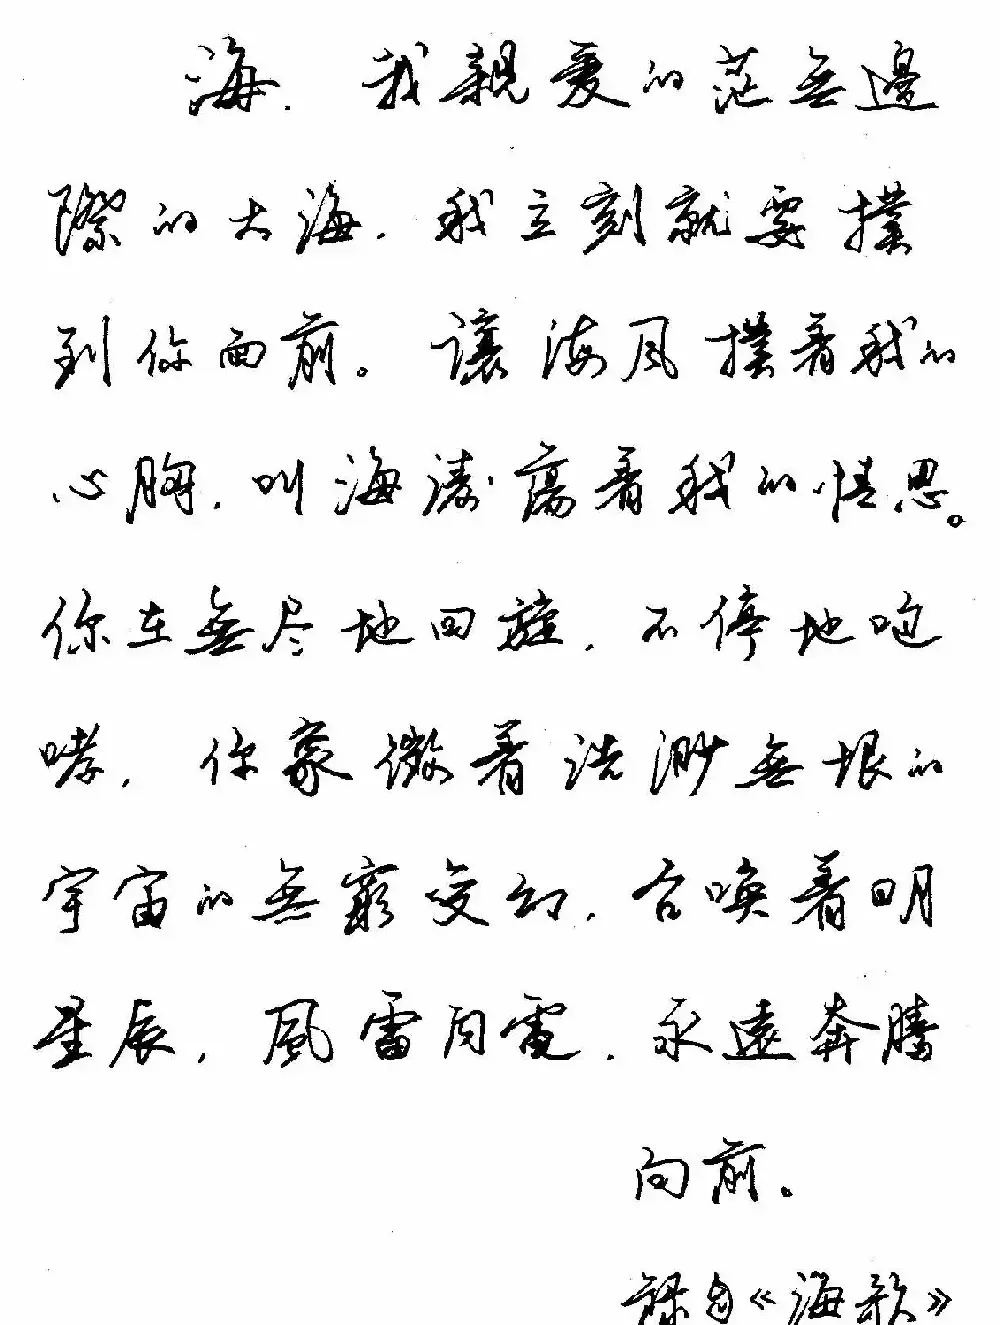 海，我親爱的茫無邊
際的大海，我立刻就要撲
到你面前。讓海风撲着我的
心胸，叫海濤蕩着我的情思。
你在無尽地回旋，不停地咆
哮，你象徵着浩渺無垠的
宇宙的無窮变幻，召唤着明
星辰，風雷闪電，永遠奔腾
向前。
録自《海歌》